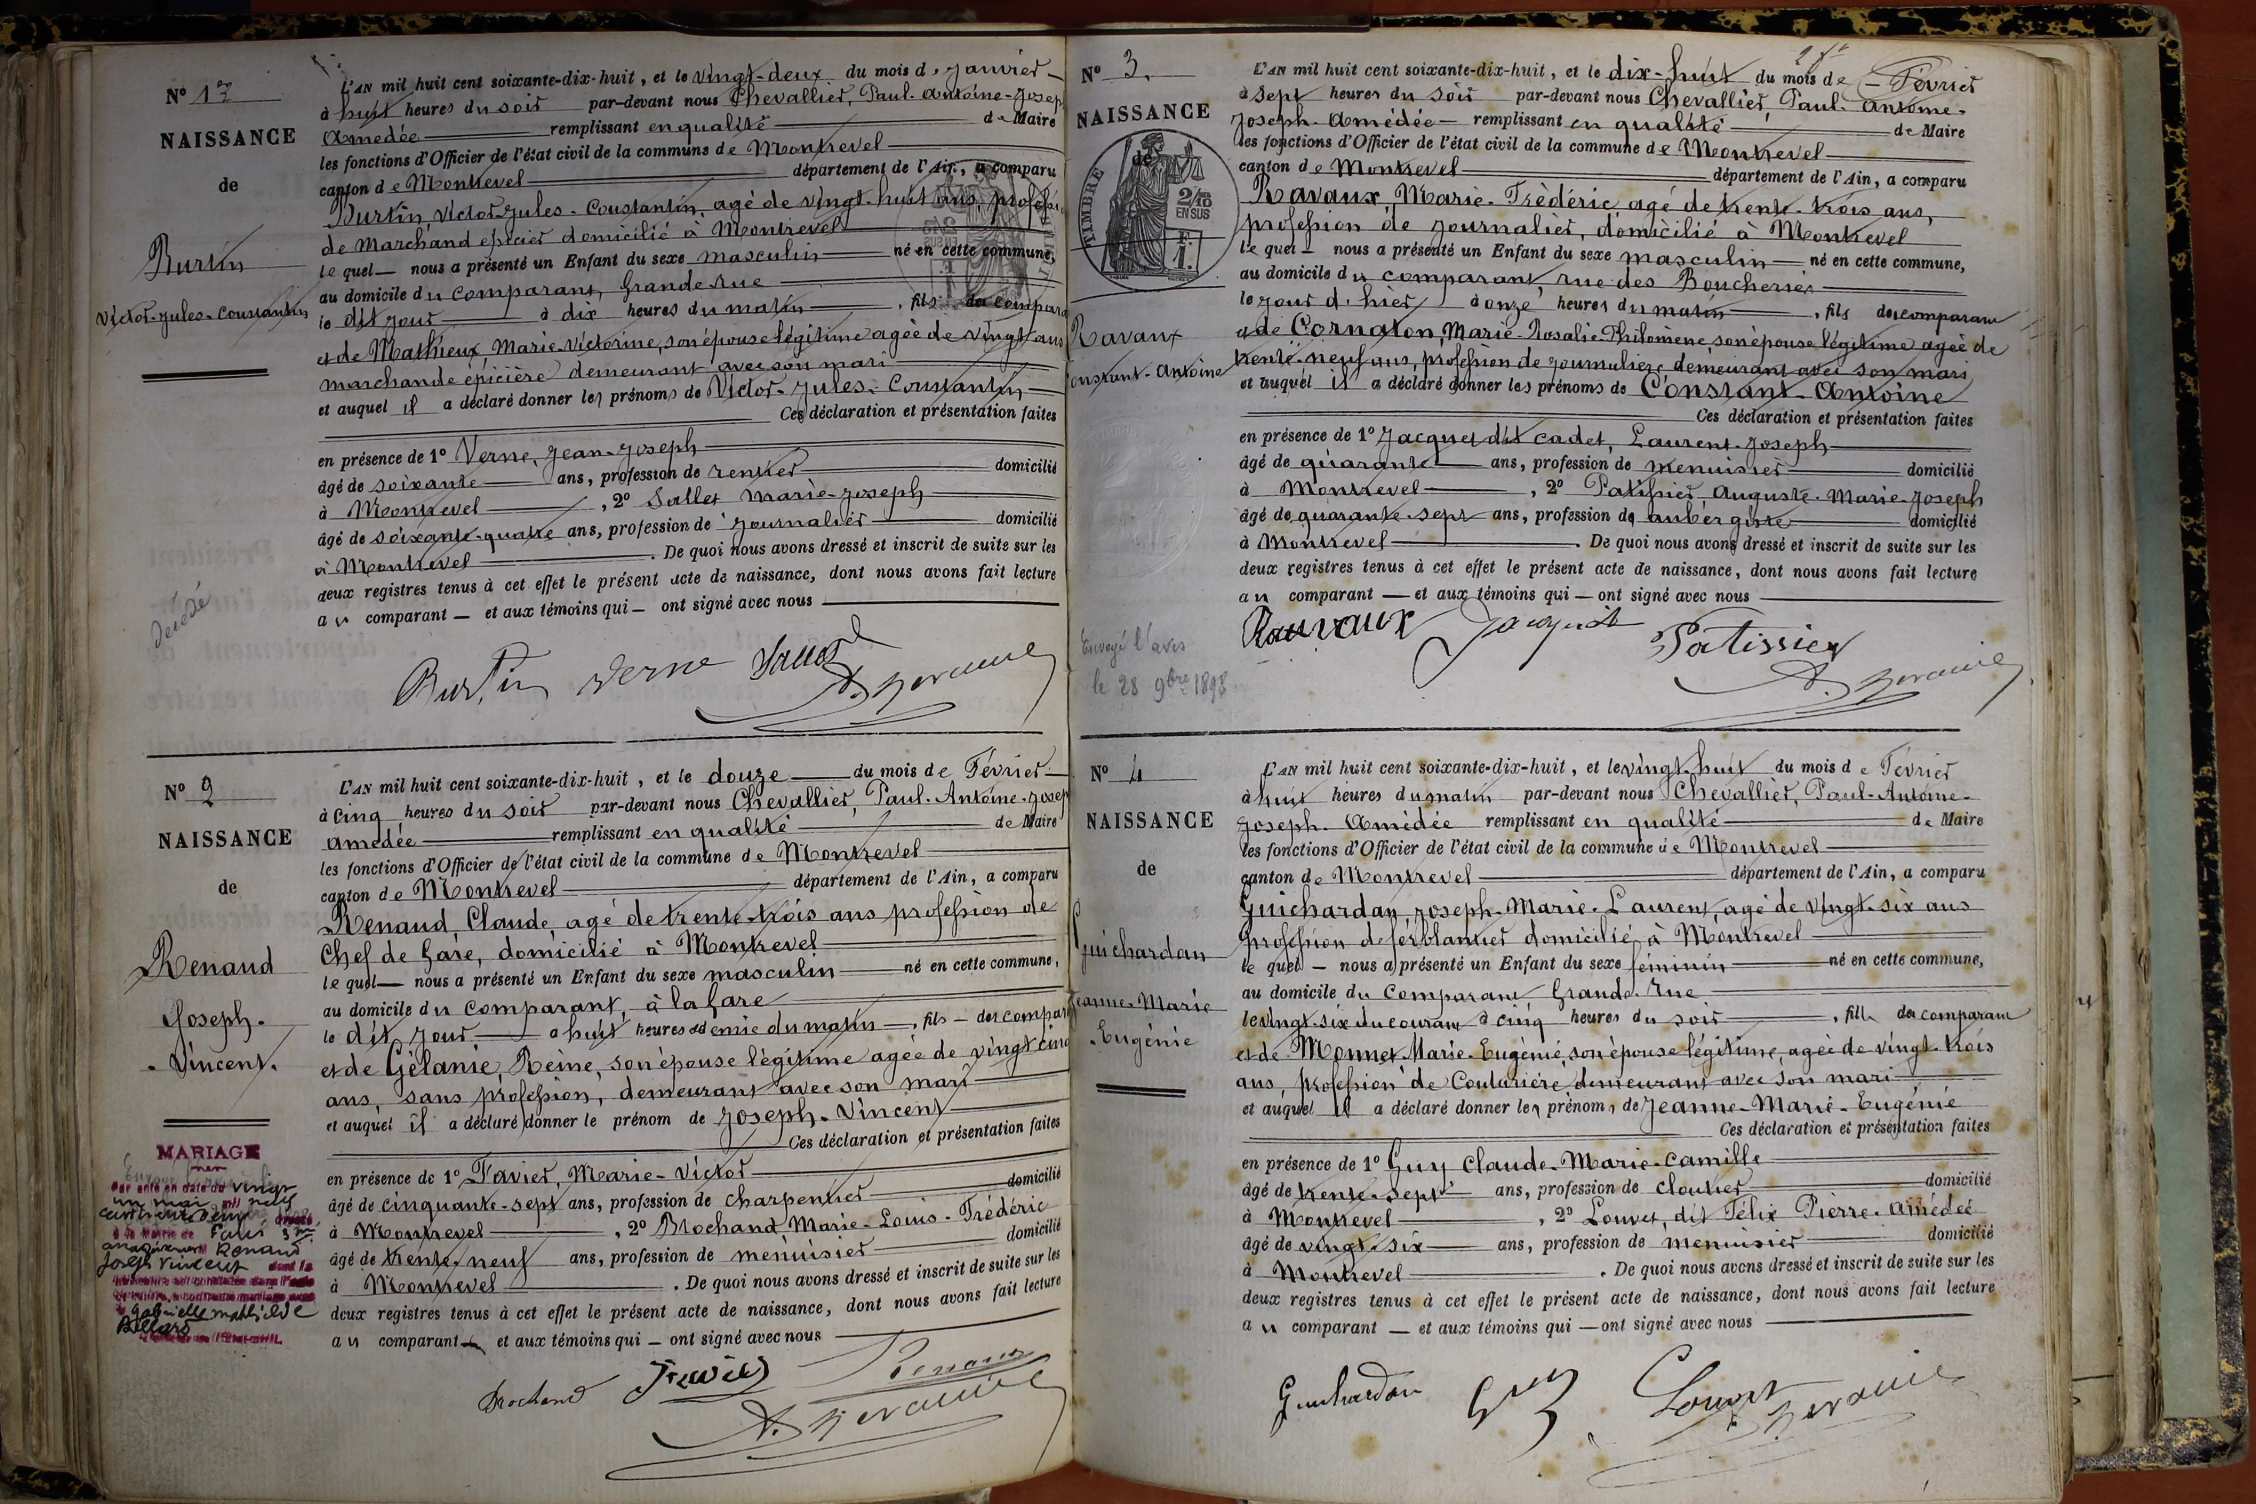 N° 1er
NAISSANCE
de
Burtin
Victor-Jules-Constantin
décédé
L'AN mil huit cent soixante-dix-huit, et le vingt-deux du mois de Janvier
à huit heures du soir par-devant nous Chevallier, Paul-Antoine-Joseph
Amédée remplissant en qualité de Maire
les fonctions d'Officier de l'état civil de la commune de Montrevel
canton de Montrevel département de l'Ain, a comparu
Burtin, Victor-Jules-Constantin, agé de vingt-huit ans, profession
de Marchand épicier domicilié à Montrevel
lequel nous a présenté un Enfant du sexe masculin né en cette commune,
au domicile du comparant, Grande rue
le dit jour à dix heures du matin, fils du comparant
et de Mathieux, Marie-Victorine, son épouse légitime agée de vingt ans
marchande épicière demeurant avec son mari
et auquel il a déclaré donner les prénoms de Victor-Jules-Constantin
Ces déclaration et présentation faites
en présence de 1° Verne, Jean-Joseph
âgé de soixante ans, profession de rentier domicilié
à Montrevel, 2° Sallet Marie-Joseph
âgé de soixante-quatre ans, profession de journalier domicilié
à Montrevel. De quoi nous avons dressé et inscrit de suite sur les
deux registres tenus à cet effet le présent acte de naissance, dont nous avons fait lecture
au comparant et aux témoins qui ont signé avec nous
Burtin Verne Sallet
N° 2
NAISSANCE
de
Renaud
Joseph-
-Vincent.
MARIAGE
Par acte en date du vingt
un mai mil neuf
à la Mairie de Paris
Renaud
Joseph Vincent dont la
Gabrielle Mathilde
L'AN mil huit cent soixante-dix-huit, et le douze du mois de Février
à cinq heures du soir par-devant nous Chevallier, Paul-Antoine-Joseph
Amédée remplissant en qualité de Maire
les fonctions d'Officier de l'état civil de la commune de Montrevel
canton de Montrevel département de l'Ain, a comparu
Renaud, Claude, agé de trente-trois ans profession de
Chef de Gare, domicilié à Montrevel
lequel nous a présenté un Enfant du sexe masculin né en cette commune,
au domicile du comparant, à la Gare
le dit jour à huit heures et demie du matin, fils du comparant
et de Gélanie, Reine, son épouse légitime agée de vingt cinq
ans, sans profession, demeurant avec son mari
et auquel il a déclaré donner le prénom de Joseph-Vincent
Ces déclaration et présentation faites
en présence de 1° Favier, Marie-Victor
âgé de cinquante-sept ans, profession de charpentier domicilié
à Montrevel, 2° Brochand, Marie-Louis-Frédéric
âgé de trente-neuf ans, profession de menuisier domicilié
à Montrevel. De quoi nous avons dressé et inscrit de suite sur les
deux registres tenus à cet effet le présent acte de naissance, dont nous avons fait lecture
au comparant et aux témoins qui ont signé avec nous
Brochand Favier Renaud
N° 3.
NAISSANCE
de
TIMBRE
2/10
EN SUS
Ravaux
Constant-Antoine
Envoyé l'avis
le 28 9bre 1898
L'AN mil huit cent soixante-dix-huit, et le dix-huit du mois de Février
à sept heures du soir par-devant nous Chevallier, Paul-Antoine-
Joseph-Amédée remplissant en qualité de Maire
les fonctions d'Officier de l'état civil de la commune de Montrevel
canton de Montrevel département de l'Ain, a comparu
Ravaux, Marie-Frédéric agé de trente-trois ans,
profession de journalier, domicilié à Montrevel
lequel nous a présenté un Enfant du sexe masculin né en cette commune,
au domicile du comparant, rue des Boucheries
le jour d'hier à onze heures du matin, fils du comparant
et de Cornaton, Marie-Rosalie-Philomène, son épouse légitime agée de
trente-neuf ans, profession de journalière demeurant avec son mari
et auquel il a déclaré donner les prénoms de Constant-Antoine
Ces déclaration et présentation faites
en présence de 1° Jacquet dit cadet, Laurent-Joseph
âgé de quarante ans, profession de menuisier domicilié
à Montrevel, 2° Patissier, Auguste-Marie-Joseph
âgé de quarante-sept ans, profession de aubergiste domicilié
à Montrevel. De quoi nous avons dressé et inscrit de suite sur les
deux registres tenus à cet effet le présent acte de naissance, dont nous avons fait lecture
au comparant et aux témoins qui ont signé avec nous
Ravaux Patissier
N° 4
NAISSANCE
de
Guichardan
Jeanne-Marie
-Eugénie
L'AN mil huit cent soixante-dix-huit, et le vingt-huit du mois de Février
à huit heures du matin par-devant nous Chevallier, Paul-Antoine-
Joseph-Amédée remplissant en qualité de Maire
les fonctions d'Officier de l'état civil de la commune de Montrevel
canton de Montrevel département de l'Ain, a comparu
Guichardan, Joseph-Marie-Laurent, agé de vingt-six ans
profession de ferblantier domicilié à Montrevel
lequel nous a présenté un Enfant du sexe féminin né en cette commune,
au domicile du Comparant, Grande-rue
le vingt-six du courant à cinq heures du soir, fille du comparant
et de Monnet Marie-Eugénie, son épouse légitime, agée de vingt-trois
ans, profession de Couturière demeurant avec son mari
et auquel il a déclaré donner les prénoms de Jeanne-Marie-Eugénie
Ces déclaration et présentation faites
en présence de 1° Guy Claude-Marie-Camille
âgé de trente-sept ans, profession de cloutier domicilié
à Montrevel, 2° Louvet, dit Félix Pierre-Amédée
âgé de vingt-six ans, profession de menuisier domicilié
à Montrevel. De quoi nous avons dressé et inscrit de suite sur les
deux registres tenus à cet effet le présent acte de naissance, dont nous avons fait lecture
au comparant et aux témoins qui ont signé avec nous
Guichardan Guy Louvet